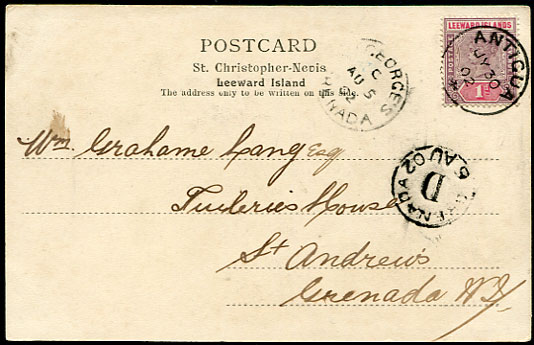 POSTCARD
St. Christopher-Nevis
Leeward Island
The address only to be written on this side.
LEEWARD ISLANDS
POSTAGE
1D
ANTIGUA
JY 30
02
GEORGE'S
C
AU 5
02
GRENADA
GRENADA
D
5 AU 02
Wm. Grahame Lang Esq
House
St Andrew's
Grenada W.I.